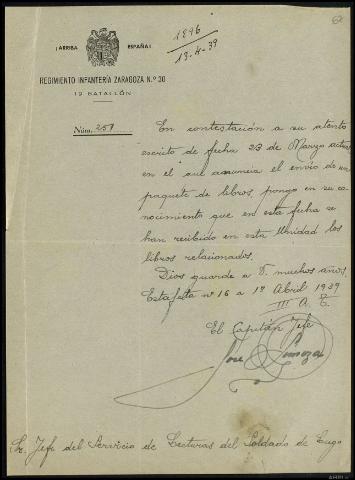 62
¡ARRIBA ESPAÑA!
1896
13-4-39
REGIMIENTO INFANTERÍA ZARAGOZA N.º 30
12 BATALLÓN
Núm. 251
En contestación a su atento
escrito de fecha 23 de Marzo actual
en el que anuncia el envío de un
paquete de libros pongo en su co
nocimiento que en esta fecha se
han recibido en esta Unidad los
libros relacionados.
Dios guarde a V. muchos años.
Estafeta nº 16 a 1º Abril 1939
III A. T.
El Capitán Jefe
Jose
Sr. Jefe del Servicio de Lecturas del Soldado de Lugo